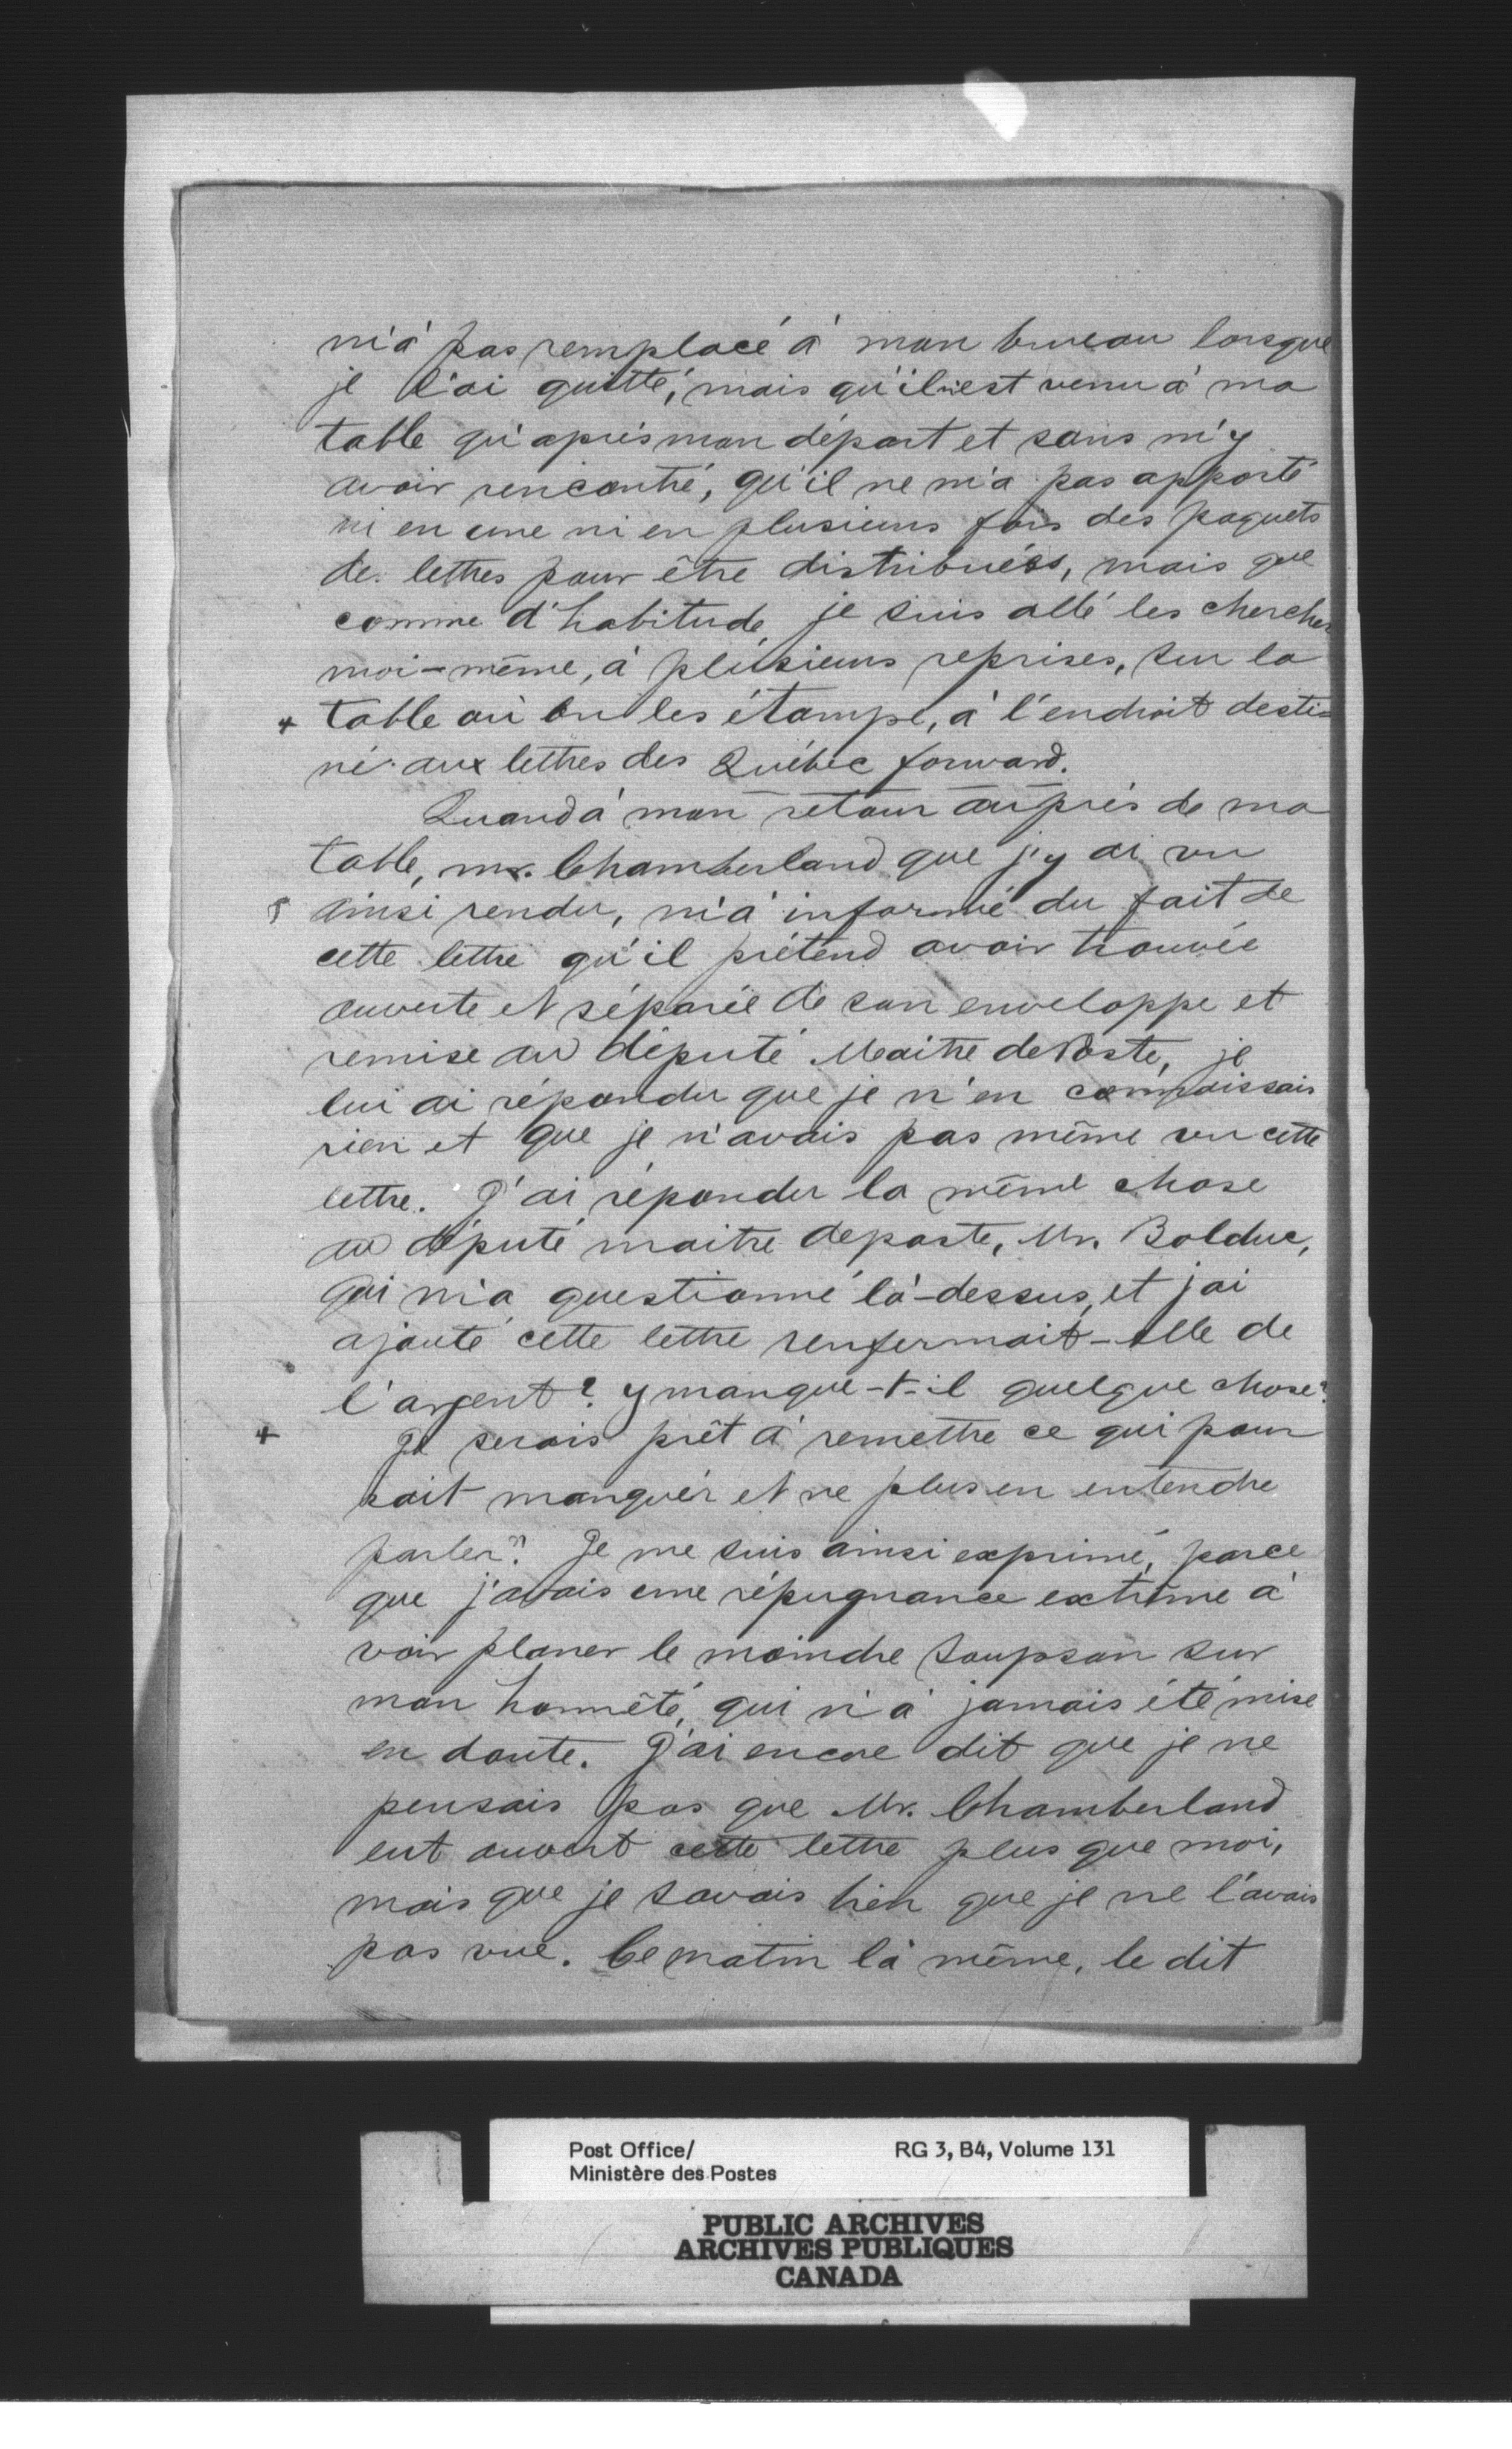 m'a pas remplacé à mon bureau lorsque
je l'ai quitté, mais qu'il n'est venu à ma
table qu'après mon départ et sans m'y
avoir rencontré, qu'il ne m'a pas apporté
ni en une ni en plusieurs fois des paquets
de lettres pour être distribuées, mais que
comme d'habitude, je suis allé les chercher
moi-même, à plusieurs reprises, sur la
+ table où on les étampe, à l'endroit desti=
né aux lettres des Québec forward.
Quand à mon retour auprès de ma
table, mr. Chamberland que j'y ai vu
ainsi rendu, m'a informé du fait de
cette lettre qu'il prétend avoir trouvée
ouverte et séparée de son enveloppe et
remise au député Maitre de Poste, je
lui ai répondu que je n'en connaissais
rien et que je n'avais pas même vu cette
lettre. J'ai répondu la même chose
au député maitre de poste, Mr. Bolduc,
qui m'a questionné là-dessus, et j'ai
ajouté cette lettre renfermait-elle de
l'argent? y manque-t-il quelque chose?
+ Je serais prêt à remettre ce qui pour
rait manquer et ne plus en entendre
parler". Je me suis ainsi exprimé, parce
que j'avais une répugnance extrême à
voir planer le moindre soupson sur
mon honnêté, qui n'a jamais été mise
en doute. J'ai encore dit que je ne
pensais pas que Mr. Chamberland
eut ouvert cette lettre plus que moi,
mais que je savais bien que je ne l'avais
pas vue. Ce matin là même, le dit
Post Office/ RG 3, B4, Volume 131
Ministère des Postes
PUBLIC ARCHIVES
ARCHIVES PUBLIQUES
CANADA